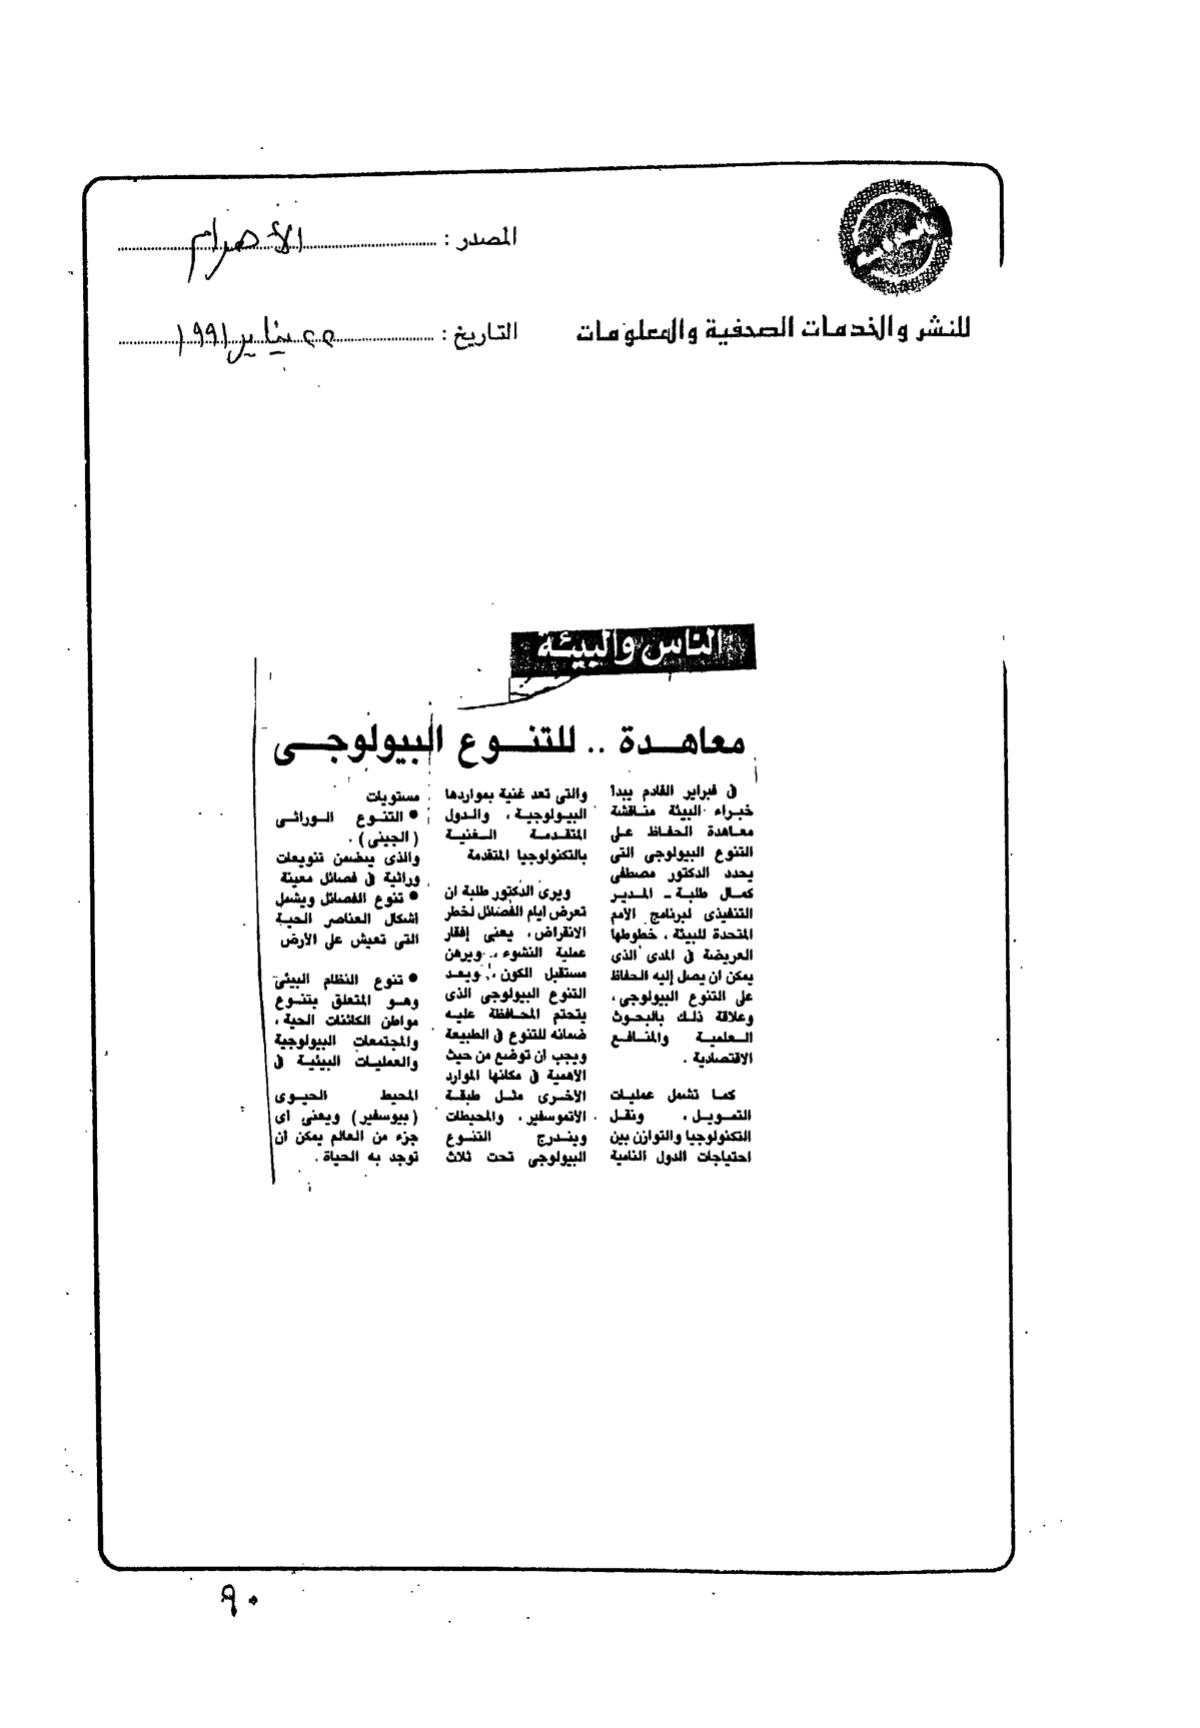 المصدر : الأهرام
للنشر والخدمات الصحفية والمعلومات
التاريخ : ٢٢ يناير ١٩٩١
الناس والبيئة
معاهدة .. للتنوع البيولوجى
فى فبراير القادم يبدأ
خبراء البيئة مناقشة
معاهدة الحفاظ على
التنوع البيولوجى التى
يحدد الدكتور مصطفى
كمال طلبة ـ المدير
التنفيذى لبرنامج الأمم
المتحدة للبيئة ، خطوطها
العريضة فى المدى الذى
يمكن ان يصل إليه الحفاظ
على التنوع البيولوجى ،
وعلاقة ذلك بالبحوث
العلمية والمنافع
الاقتصادية .
كما تشمل عمليات
التمويل ، ونقل
التكنولوجيا والتوازن بين
احتياجات الدول النامية
والتى تعد غنية بمواردها
البيولوجية ، والدول
المتقدمة الغنية
بالتكنولوجيا المتقدمة
ويرى الدكتور طلبة ان
تعرض ايام الفصائل لخطر
الانقراض ، يعنى إفقار
عملية النشوء ، ويرهن
مستقبل الكون ، ويعد
التنوع البيولوجى الذى
يتحتم المحافظة عليه
ضمانه للتنوع فى الطبيعة
ويجب ان توضع من حيث
الاهمية فى مكانها الموارد
الاخرى مثل طبقة
الاتموسفير ، والمحيطات
ويندرج التنوع
البيولوجى تحت ثلاث
مستويات
● التنوع الوراثى
( الجينى ) .
والذى يتضمن تنويعات
وراثية فى فصائل معينة
● تنوع الفصائل ويشمل
اشكال العناصر الحية
التى تعيش على الأرض
● تنوع النظام البيئى
وهو المتعلق بتنوع
مواطن الكائنات الحية ،
والمجتمعات البيولوجية
والعمليات البيئية فى
المحيط الحيوى
( بيوسفير ) ويعنى اى
جزء من العالم يمكن ان
توجد به الحياة .
٩٠